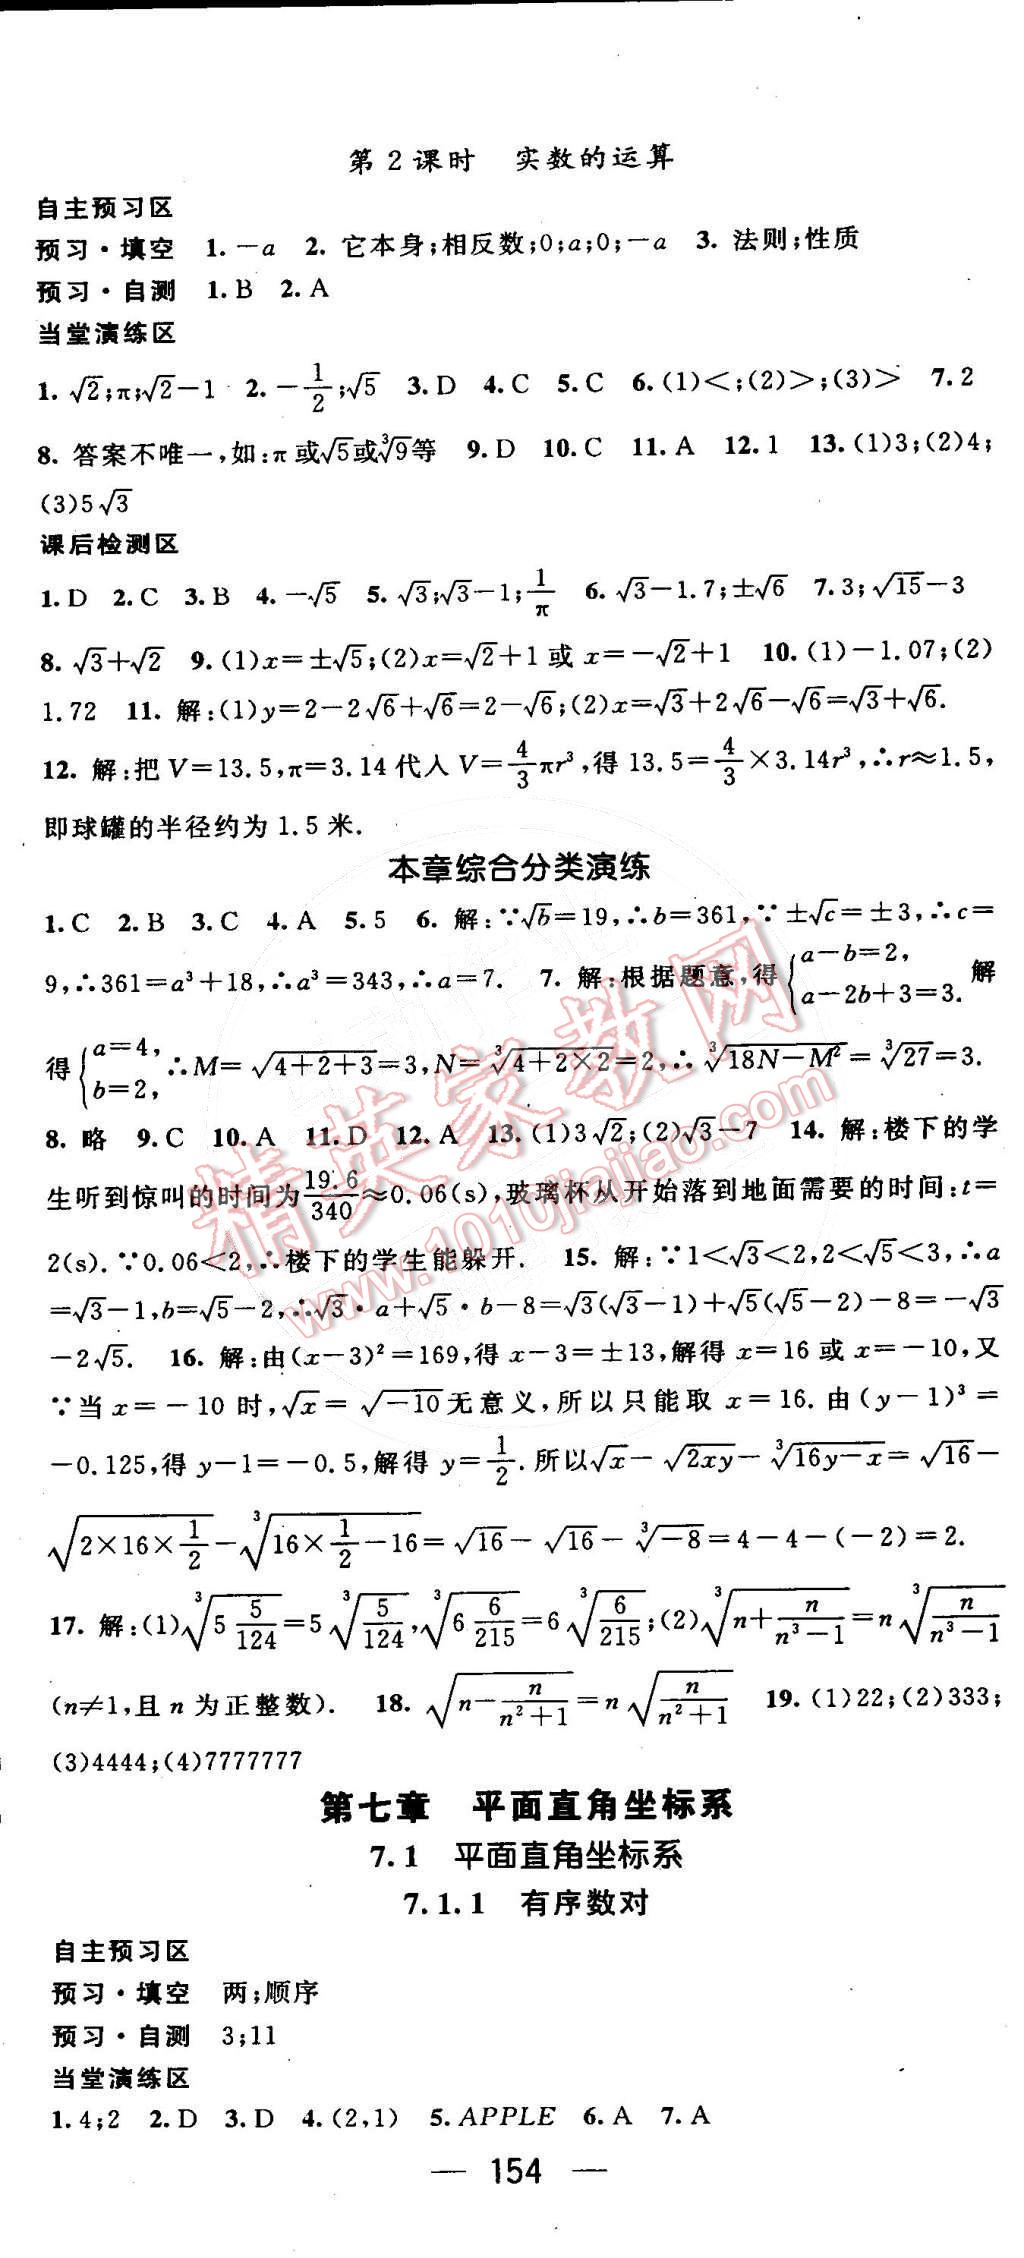 第2课时 实数的运算
自主预习区
预习·填空 1. －a 2. 它本身;相反数;0;a;0;－a 3. 法则;性质
预习·自测 1. B 2. A
当堂演练区
1. √2;π;√2－1 2. －1/2;√5 3. D 4. C 5. C 6. (1)＜;(2)＞;(3)＞ 7. 2
8. 答案不唯一,如:π或√5或∛9等 9. D 10. C 11. A 12. 1 13. (1)3;(2)4;
(3)5√3
课后检测区
1. D 2. C 3. B 4. －√5 5. √3;√3－1;1/π 6. √3－1.7;±√6 7. 3;√15－3
8. √3＋√2 9. (1)x＝±√5;(2)x＝√2＋1或x＝－√2＋1 10. (1)－1.07;(2)
1.72 11. 解:(1)y＝2－2√6＋√6＝2－√6;(2)x＝√3＋2√6－√6＝√3＋√6.
12. 解:把V＝13.5,π＝3.14代人V＝4/3πr³,得13.5＝4/3×3.14r³,∴r≈1.5,
即球罐的半径约为1.5米.
本章综合分类演练
1. C 2. B 3. C 4. A 5. 5 6. 解:∵√b＝19,∴b＝361,∵±√c＝±3,∴c＝
9,∴361＝a³＋18,∴a³＝343,∴a＝7. 7. 解:根据题意,得{a－b＝2, a－2b＋3＝3. 解
得{a＝4, b＝2, ∴M＝√(4＋2＋3)＝3,N＝∛(4＋2×2)＝2,∴∛(18N－M²)＝∛27＝3.
8. 略 9. C 10. A 11. D 12. A 13. (1)3√2;(2)√3－7 14. 解:楼下的学
生听到惊叫的时间为19.6/340≈0.06(s),玻璃杯从开始落到地面需要的时间:t＝
2(s).∵0.06＜2,∴楼下的学生能躲开. 15. 解:∵1＜√3＜2,2＜√5＜3,∴a
＝√3－1,b＝√5－2,∴√3·a＋√5·b－8＝√3(√3－1)＋√5(√5－2)－8＝－√3
－2√5. 16. 解:由(x－3)²＝169,得x－3＝±13,解得x＝16或x＝－10,又
∵当x＝－10时,√x＝√－10无意义,所以只能取x＝16.由(y－1)³＝
－0.125,得y－1＝－0.5,解得y＝1/2.所以√x－√(2xy)－∛(16y－x)＝√16－
√(2×16×1/2)－∛(16×1/2－16)＝√16－√16－∛－8＝4－4－(－2)＝2.
17. 解:(1)∛(5 5/124)＝5∛(5/124),∛(6 6/215)＝6∛(6/215);(2)∛(n＋n/(n³－1))＝n∛(n/(n³－1))
(n≠1,且n为正整数). 18. √(n－n/(n²＋1))＝n√(n/(n²＋1)) 19. (1)22;(2)333;
(3)4444;(4)7777777
第七章 平面直角坐标系
7.1 平面直角坐标系
7.1.1 有序数对
自主预习区
预习·填空 两;顺序
预习·自测 3;11
当堂演练区
1. 4;2 2. D 3. D 4. (2,1) 5. APPLE 6. A 7. A
— 154 —
精英家教网
www.1010jiajiao.com